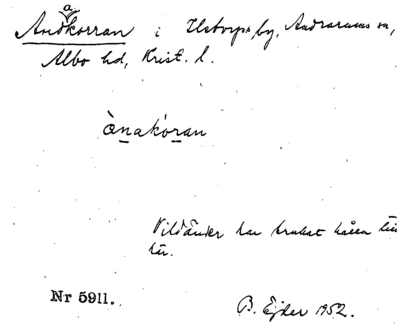 Andakorran i Ilstorps by, Andrarums sn,
Albo hd, Krist. l.
ànakóran
Vildänder har brukat hålla till
här.
Nr 5911.
B. Ejder 1952.